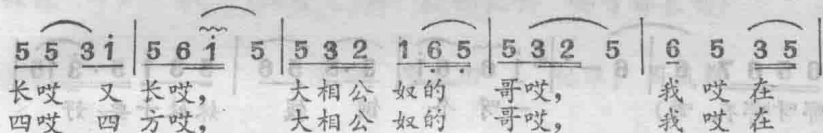 5 5 3 i | 5 6 i 5 | 5 3 2 1 6 5 | 5 3 2 5 | 6 5 3 5 |
长哎 又 长哎， 大相公 奴的 哥哎， 我 哎 在
四哎 四 方哎， 大相公 奴的 哥哎， 我 哎 在